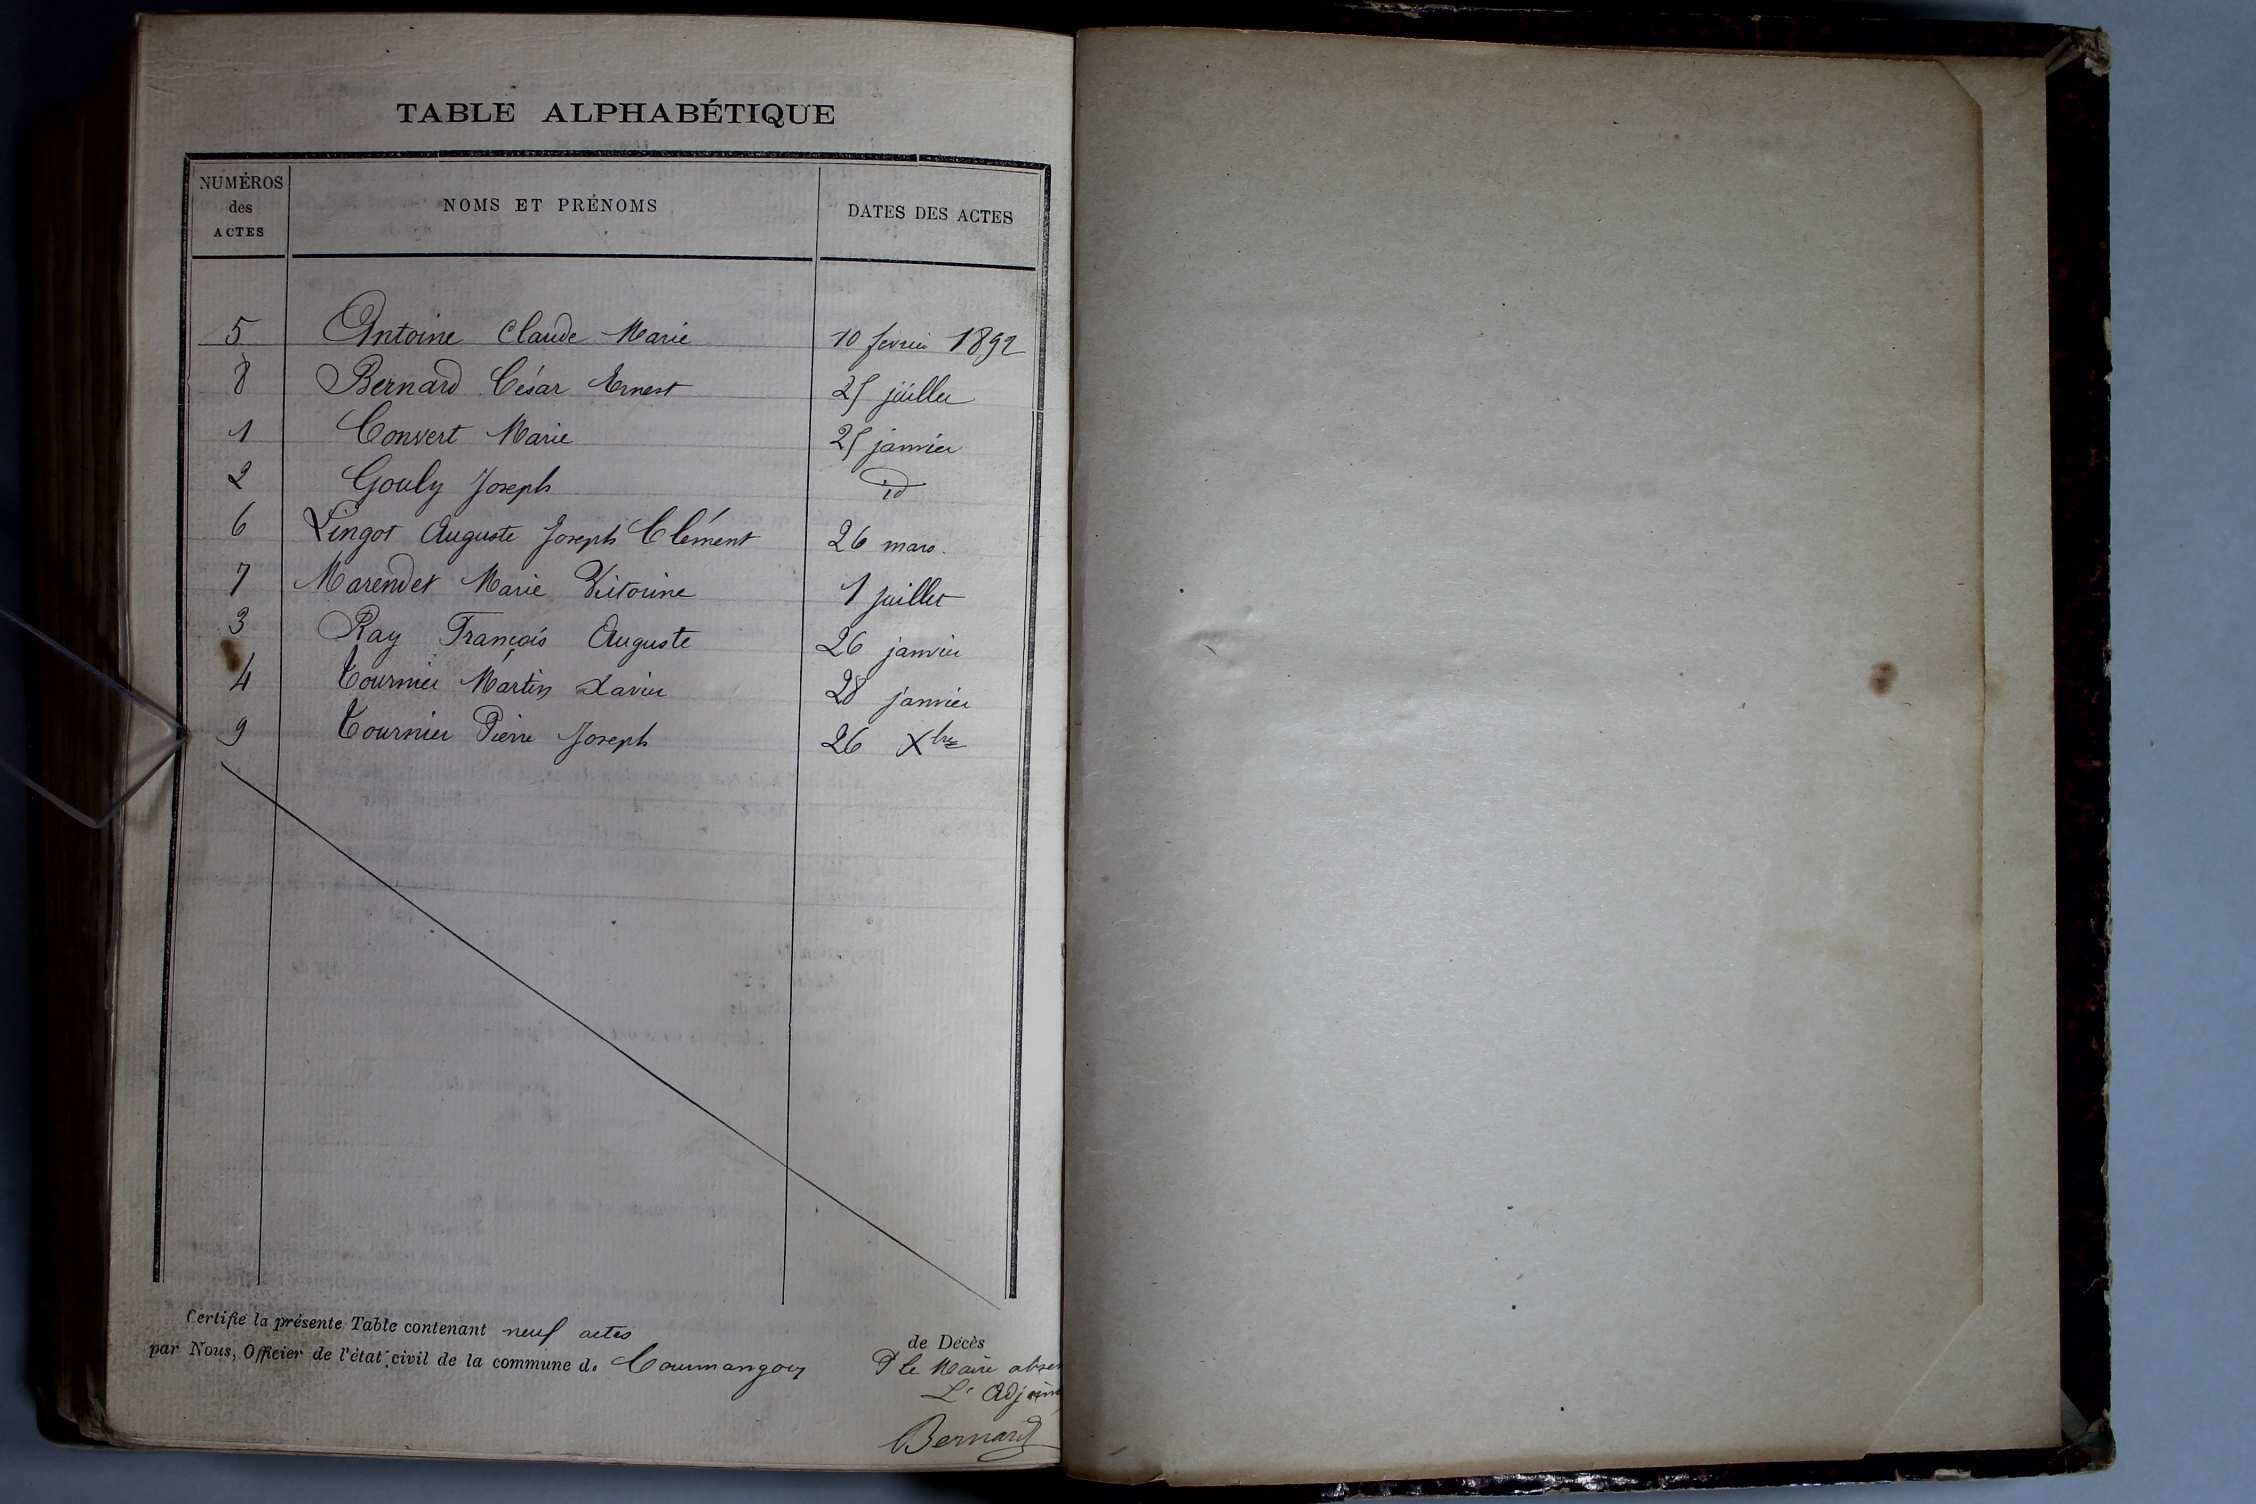 TABLE ALPHABÉTIQUE
NUMÉROS des ACTES NOMS ET PRÉNOMS DATES DES ACTES
5 Antoine Claude Marie 10 février 1892
8 Bernard César Ernest 25 juillet
1 Convert Marie 25 janvier
2 Gouly Joseph id
6 Lingot Auguste Joseph Clément 26 mars.
7 Marendet Marie Victorine 1 juillet
3 Ray François Auguste 26 janvier
4 Tournier Martin Xavier 28 janvier
9 Tournier Pierre Joseph 26 Xbre
Certifié la présente Table contenant neuf actes de Décès
par Nous, Officier de l'état civil de la commune de Courmangoux
Pr le Maire absen
L'Adjoint
Bernard